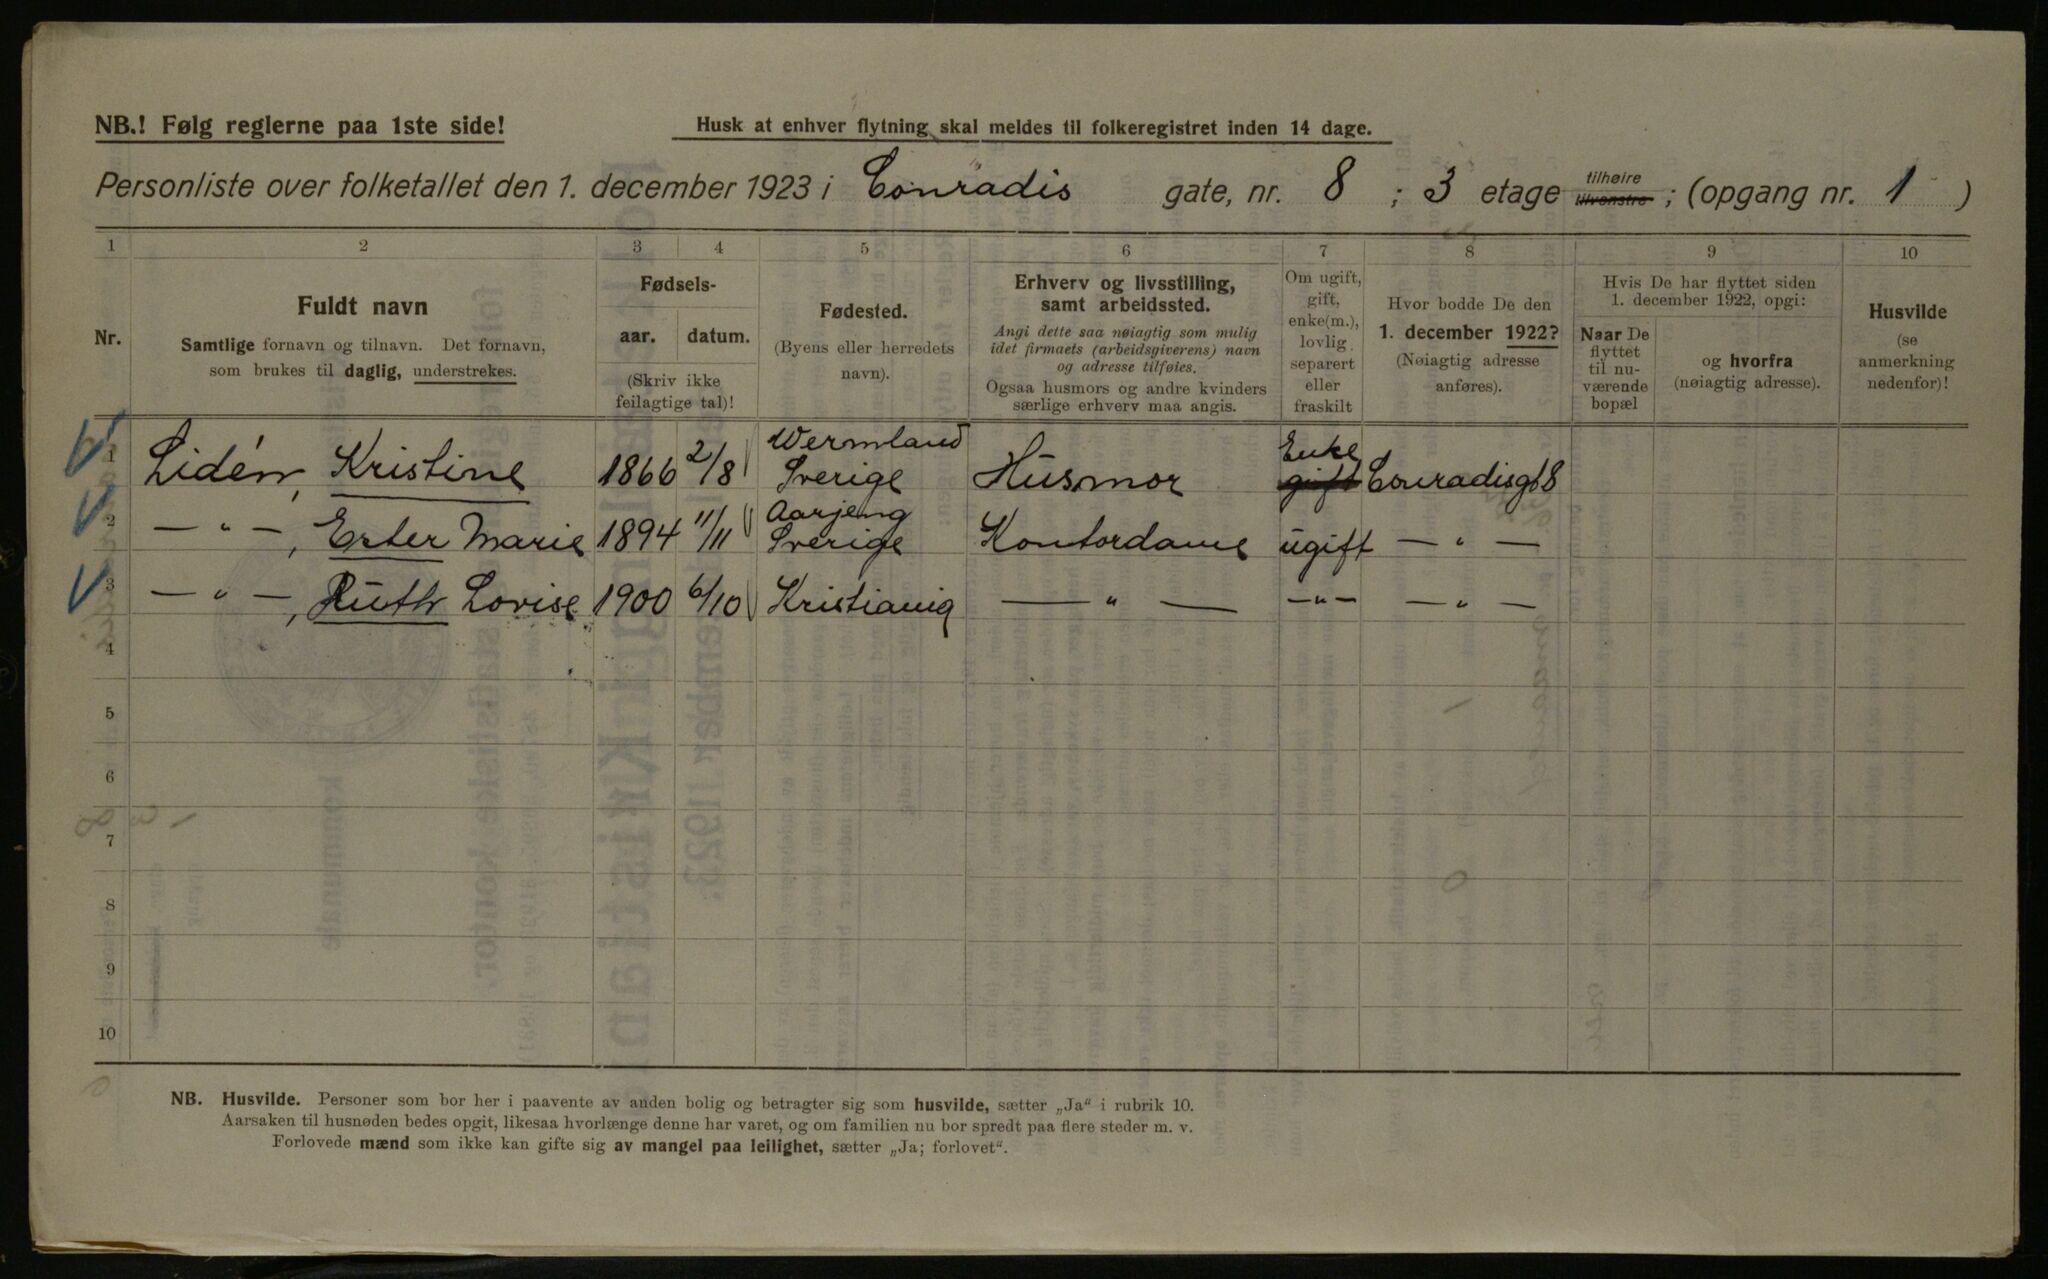 NB.! Følg reglerne paa 1ste side!
Husk at enhver flytning skal meldes til folkeregistret inden 14 dage.
Personliste over folketallet den 1. december 1923 i Conradis gate, nr. 8 ; 3 etage tilhøire tilvenstre ; (opgang nr. 1 )
1 2 3 4 5 6 7 8 9 10
Nr.
Fuldt navn
Samtlige fornavn og tilnavn. Det fornavn,
som brukes til daglig, understrekes.
Fødsels-
aar. datum.
(Skriv ikke
feilagtige tal)!
Fødested.
(Byens eller herredets
navn).
Erhverv og livsstilling,
samt arbeidssted.
Angi dette saa nøiagtig som mulig
idet firmaets (arbeidsgiverens) navn
og adresse tilføies.
Ogsaa husmors og andre kvinders
særlige erhverv maa angis.
Om ugift,
gift,
enke(m.),
lovlig
separert
eller
fraskilt
Hvor bodde De den
1. december 1922?
(Nøiagtig adresse
anføres).
Hvis De har flyttet siden
1. december 1922, opgi:
Naar De
flyttet
til nu-
værende
bopæl
og hvorfra
(nøiagtig adresse).
Husvilde
(se
anmerkning
nedenfor)!
1 Lidén, Kristine 1866 2/8 Wermland Sverige Husmor gift Enke Conradisgt 8
2 — " —, Ester Marie 1894 11/11 Aarjeng Sverige Kontordame ugift — " —
3 — " —, Ruth Lovise 1900 6/10 Kristiania — " — — " — — " —
4
5
6
7
8
9
10
NB. Husvilde. Personer som bor her i paavente av anden bolig og betragter sig som husvilde, sætter „Ja“ i rubrik 10.
Aarsaken til husnøden bedes opgit, likesaa hvorlænge denne har varet, og om familien nu bor spredt paa flere steder m. v.
Forlovede mænd som ikke kan gifte sig av mangel paa leilighet, sætter „Ja; forlovet“.